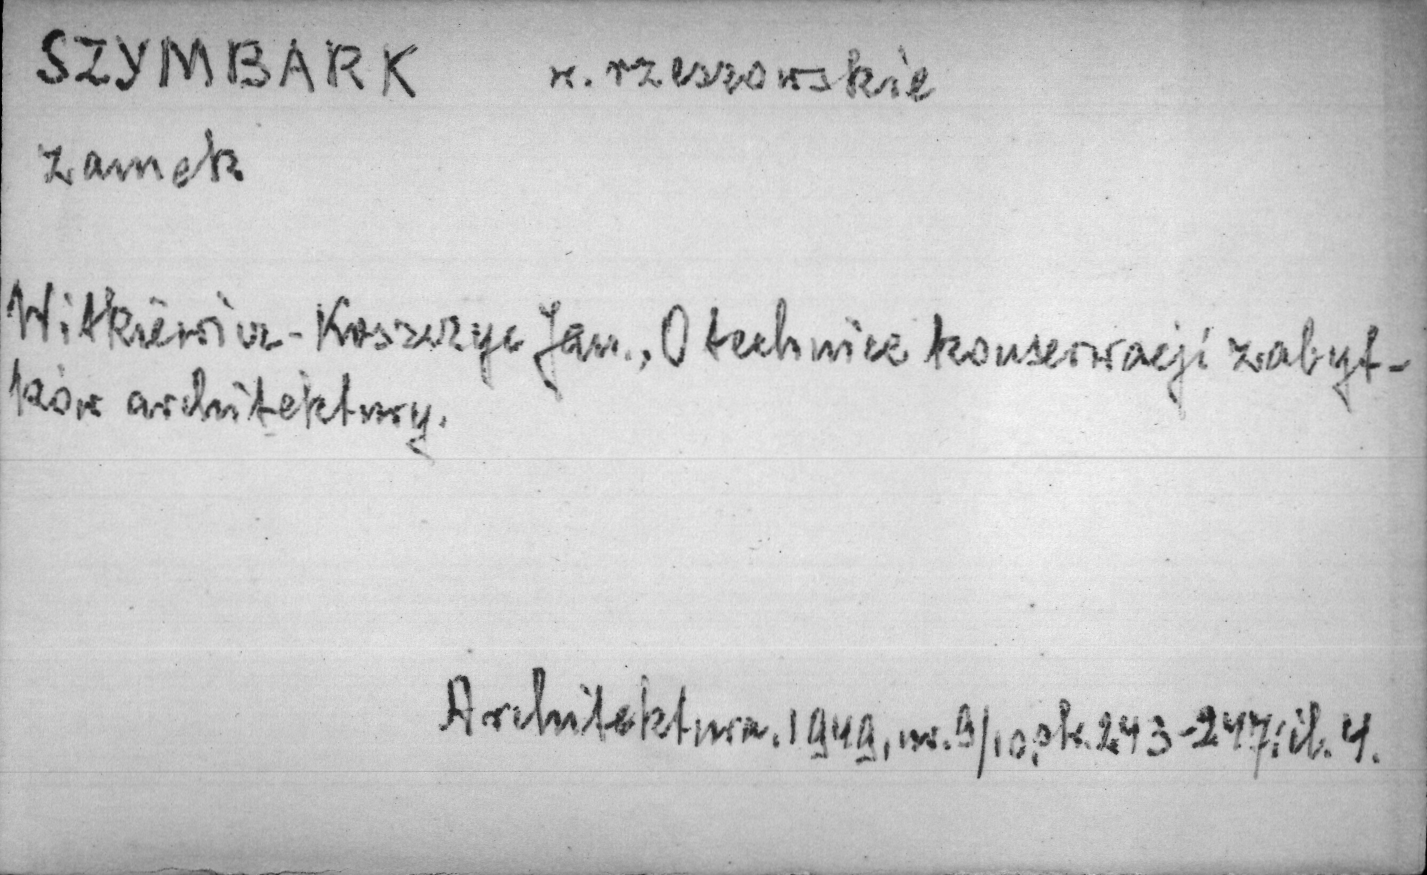 SZYMBARK w. rzeszowskie
zamek
Witkiewicz-Koszczyc Jan., O technice konserwacji zabyt-
ków architektury.
Architektura. 1949, nr. 9/10, str. 243-247; il. 4.